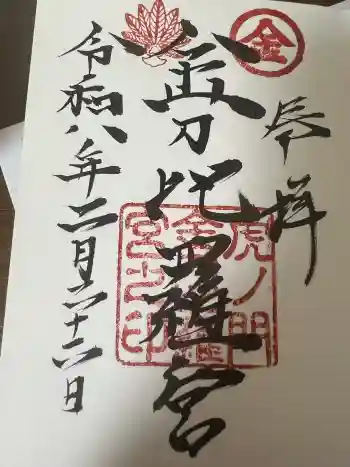 奉拝
金
金刀比羅宮
虎ノ門
金刀比羅
宮之印
令和八年二月二十二日